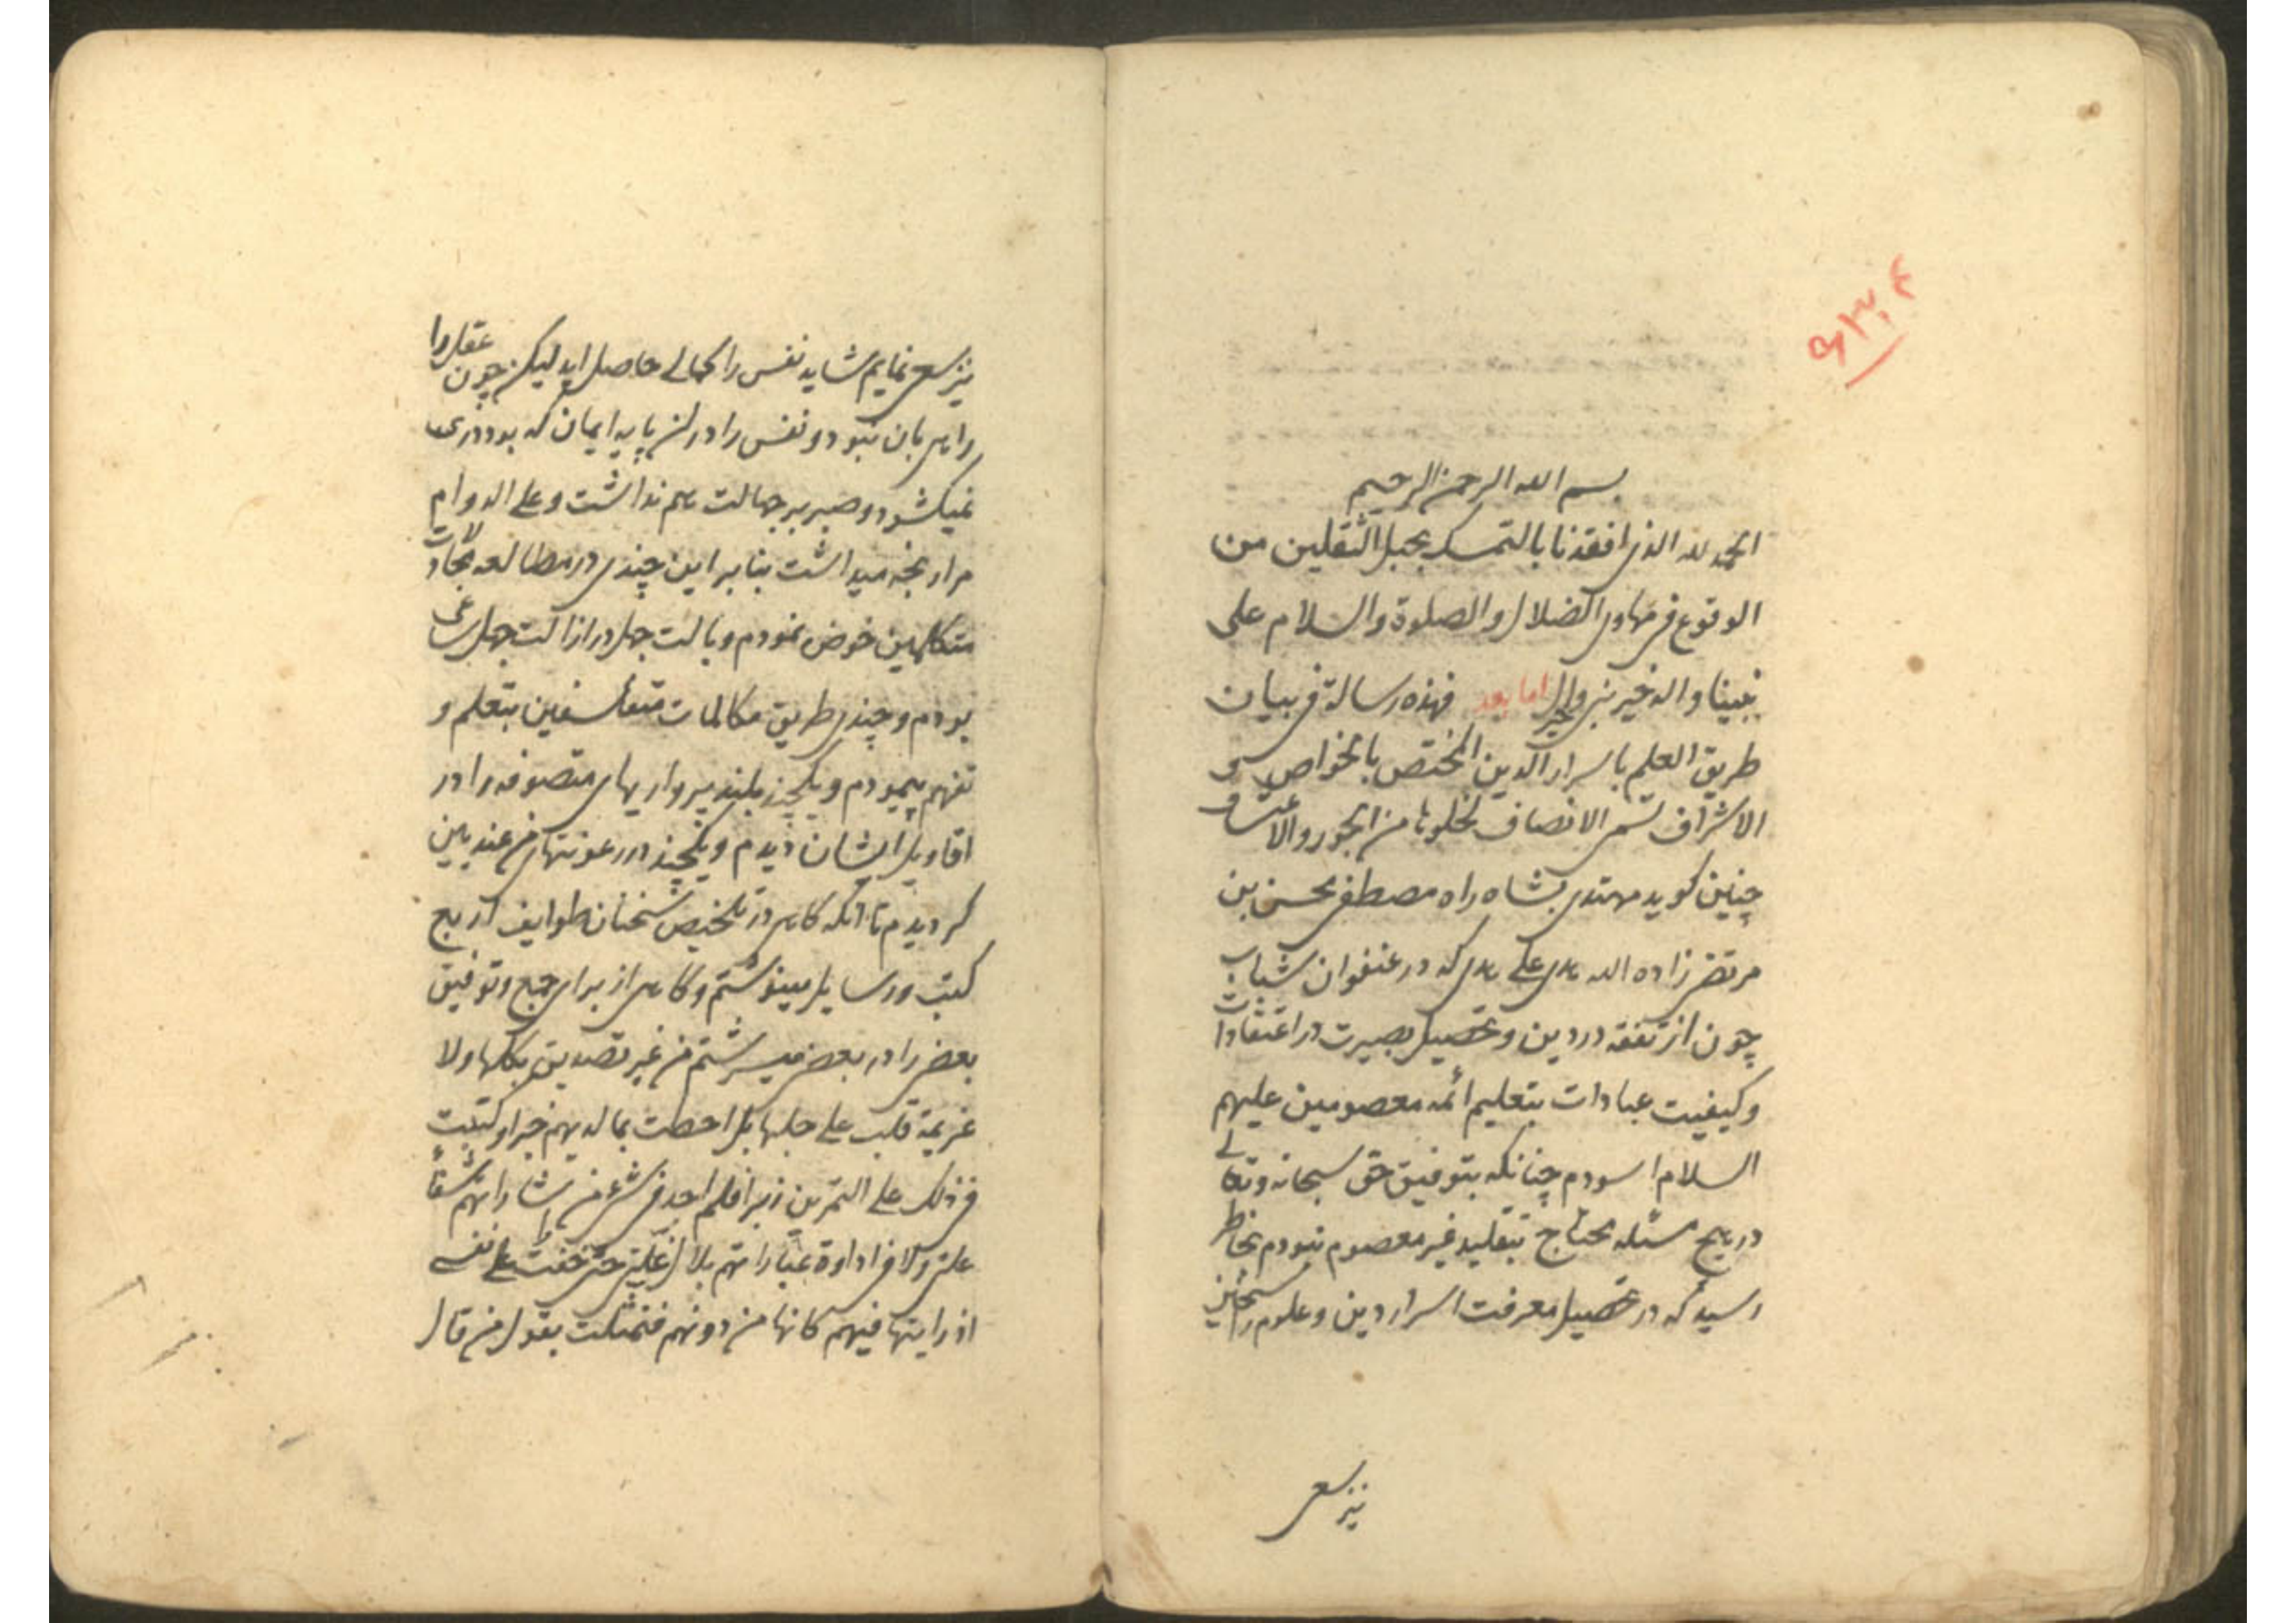 بسم الله الرحمن الرحیم
الحمد لله الذی انقذنا بالتمسک بحبل الثقلین من
الوقوع فی مهاوی الضلال و الصلوة والسلام علی
نبینا و اله خیر نبی و خیر ال اما بعد فهذه رسالة فی بیان
طریق العلم باسرار الدین المختص بالخواص
الاشراف تسمی الانصاف لخلوها من الجور والاعتساف
چنین کوید مهتدی بشاه راه مصطفی محسن بن
مرتضی زاده الله هدی علی هدی که در عنفوان شباب
چون از تفقه در دین و تحصیل بصیرت در اعتقادات
و کیفیت عبادات بتعلیم ائمه معصومین علیهم
السلام اسودم چنانکه بتوفیق حق سبحانه وتعالی
در هیچ مسئله محتاج بتقلید غیر معصوم نبودم بخاطر
رسید که در تحصیل معرفت اسرار دین و علوم راسخین
نیز سعی
نیز سعی نمایم شاید نفس را کمالی حاصل اید لیکن چون عقل را
راهی بان نبود و نفس را در ان پایه ایمان که بود دری
نمیکشود و صبر بر جهالت هم نداشت و علی الدوام
مرا رنجه میداشت بنا بر این چندی در مطالعه مجادلات
متکلمین خوض نمودم و بالت جهل در ازالت جهل ساعی
بودم و چندی طریق مکالمات متفلسفین بتعلم و
تفهم پیمودم و یکچند بلند پروازیهای متصوفه را در
اقاویل ایشان دیدم و یکچند در رعونتهای من عندیین
کردیدم تا انکه کاهی در تلخیص سخنان طوایف اربع
کتب و رسایل مینوشتم و کاهی از برای جمع و توفیق
بعضی را در بعضی میسرشتم من غیر تصدیق بکلها ولا
عزیمة قلب علی جلها بل احطت بما لدیهم خبرا و کتبت
فی ذلک علی التمرین زبرا فلم اجد فی شیء من اشاراتهم شفاء
علتی ولا فی اداوة عباراتهم بلال غلتی حتی خفت علی نفسی
اذ رایتها فیهم کانها من دونهم فتمثلت بقول من قال